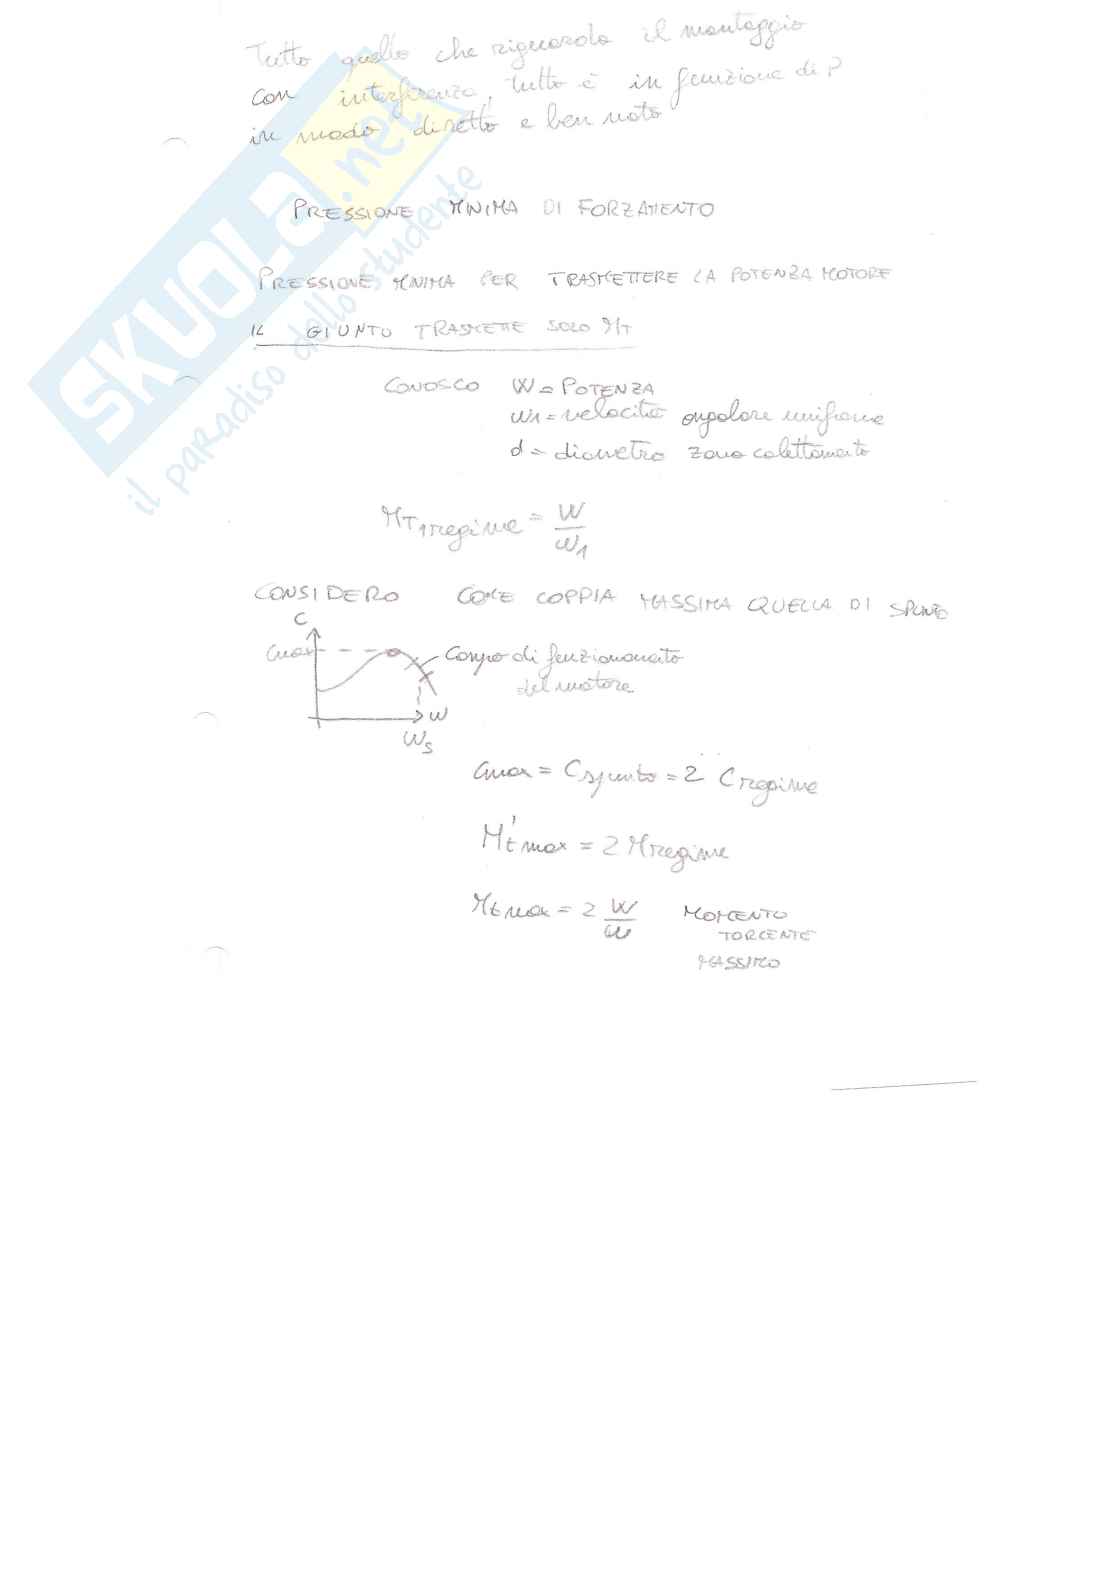 Tutto quello che riguarda il montaggio
con interferenza, tutto è in funzione di P
in modo diretto e ben noto
PRESSIONE MINIMA DI FORZAMENTO
PRESSIONE MINIMA PER TRASMETTERE LA POTENZA MOTORE
IL GIUNTO TRASMETTE SOLO MT
CONOSCO W = POTENZA
ω1 = velocità angolare uniforme
d = diametro zona calettamento
MT1regime = W / ω1
CONSIDERO COME COPPIA MASSIMA QUELLA DI SPUNTO
C
Cmax
Campo di funzionamento
del motore
ω
Ws
Cmax = Cspunto = 2 Cregime
M't max = 2 Mregime
Mt max = 2 W / ω MOMENTO
TORCENTE
MASSIMO
SKUOLA.net
il paradiso dello studente